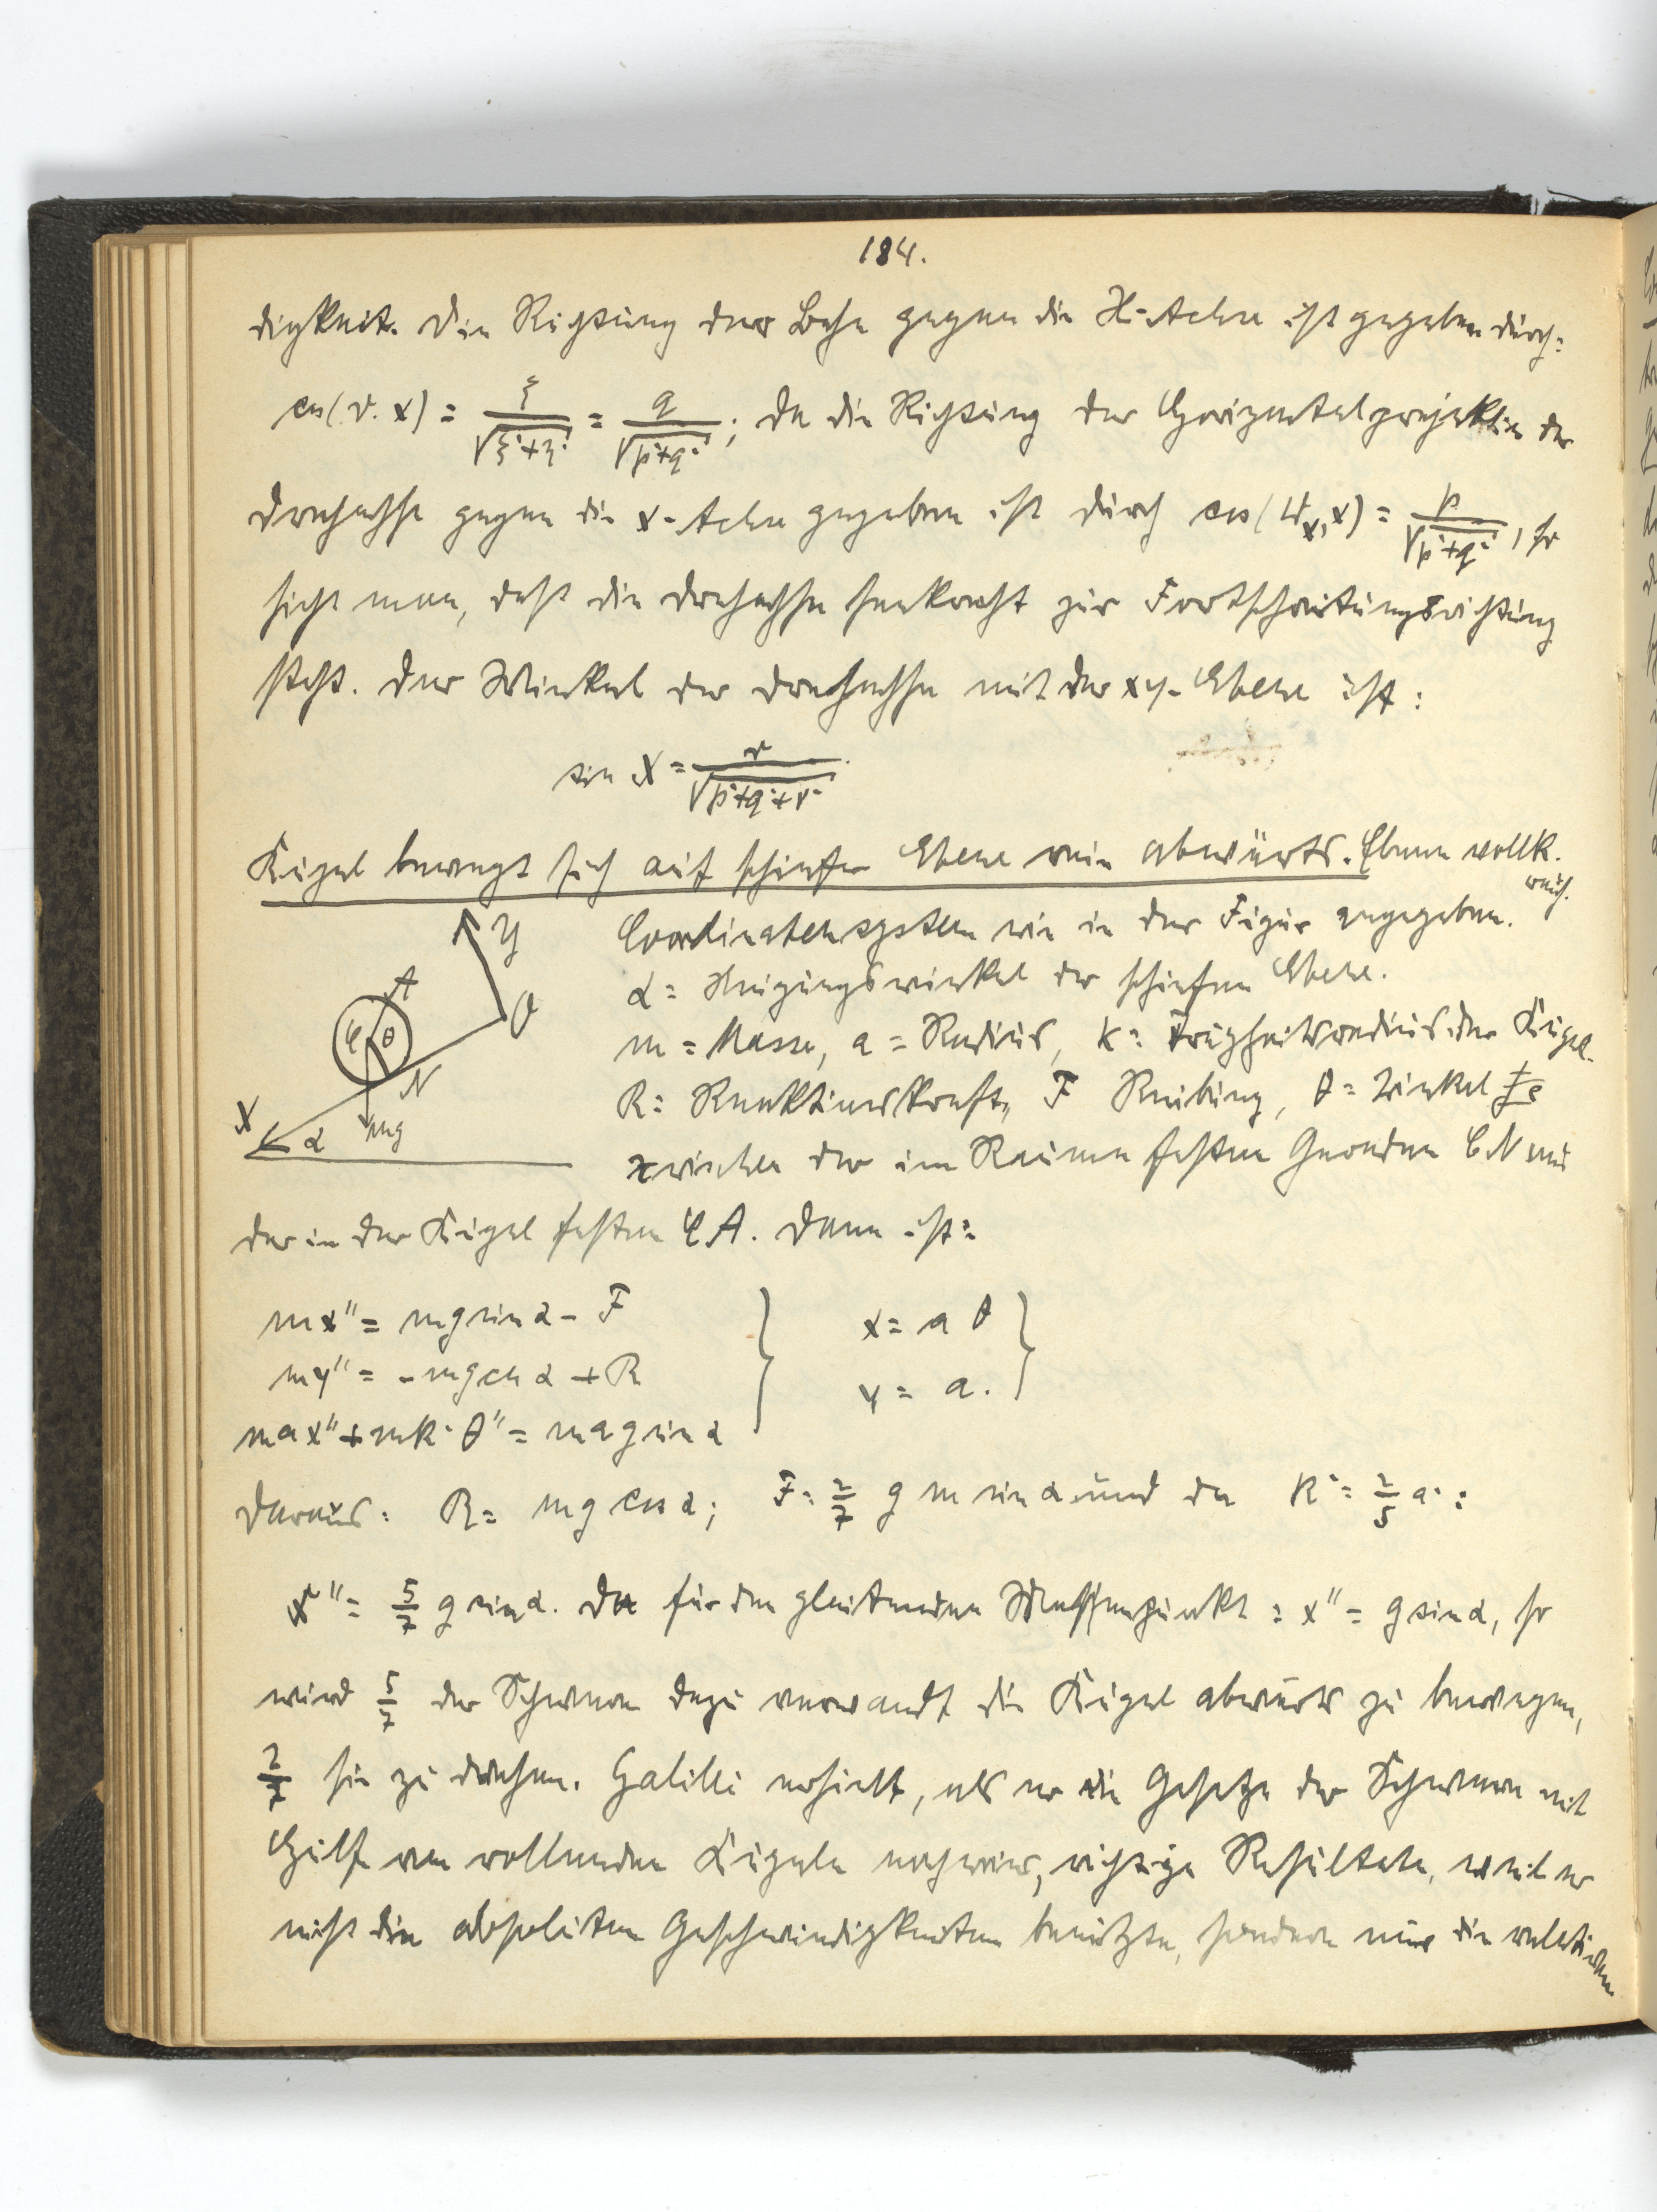 184.
digkeit. Die Richtung der Bahn gegen die X-Achse ist gegeben durch:
cos(v.x) = ξ/√(ξ²+η²) = q/√(p²+q²); da die Richtung der Horizontalprojektion der
Drehachse gegen die x-Achse gegeben ist durch cos( x, x) = p/√(p²+q²), so
sieht man, daß die Drehachse senkrecht zur Fortschreitungsrichtung
steht. Der Winkel der Drehachse mit der xy-Ebene ist:
sin X = r/√(p²+q²+r²)
Kugel bewegt sich auf schiefer Ebene rein abwärts. Ebene vollk.
rauh.
Coordinatensystem wie in der Figur angegeben.
α = Neigungswinkel der schiefen Ebene.
m = Masse, a = Radius, k = Trägheitsradius der Kugel.
R = Reaktionskraft, F Reibung, θ = Winkel
zwischen der im Raume festen Geraden CN und
der in der Kugel festen CA. Dann ist:
Y
A
O
C θ
N
X α mg
mx'' = mg sin α - F
my'' = - mg cos α + R
max'' + mk² θ'' = mag sin α
x = a θ
y = a.
Daraus: R = mg cos α; F = 2/7 g m sin α und da k² = 2/5 a²:
x'' = 5/7 g sin α. Da für den gleitenden Massenpunkt: x'' = g sin α, so
wird 5/7 der Schwere dazu verwandt die Kugel abwärts zu bewegen,
2/7 sie zu drehen. Galilei erhielt, als er die Gesetze der Schwere mit
Hilfe von rollenden Kugeln nachwies, richtige Resultate, weil er
nicht die absoluten Geschwindigkeiten benützte, sondern nur die relativen